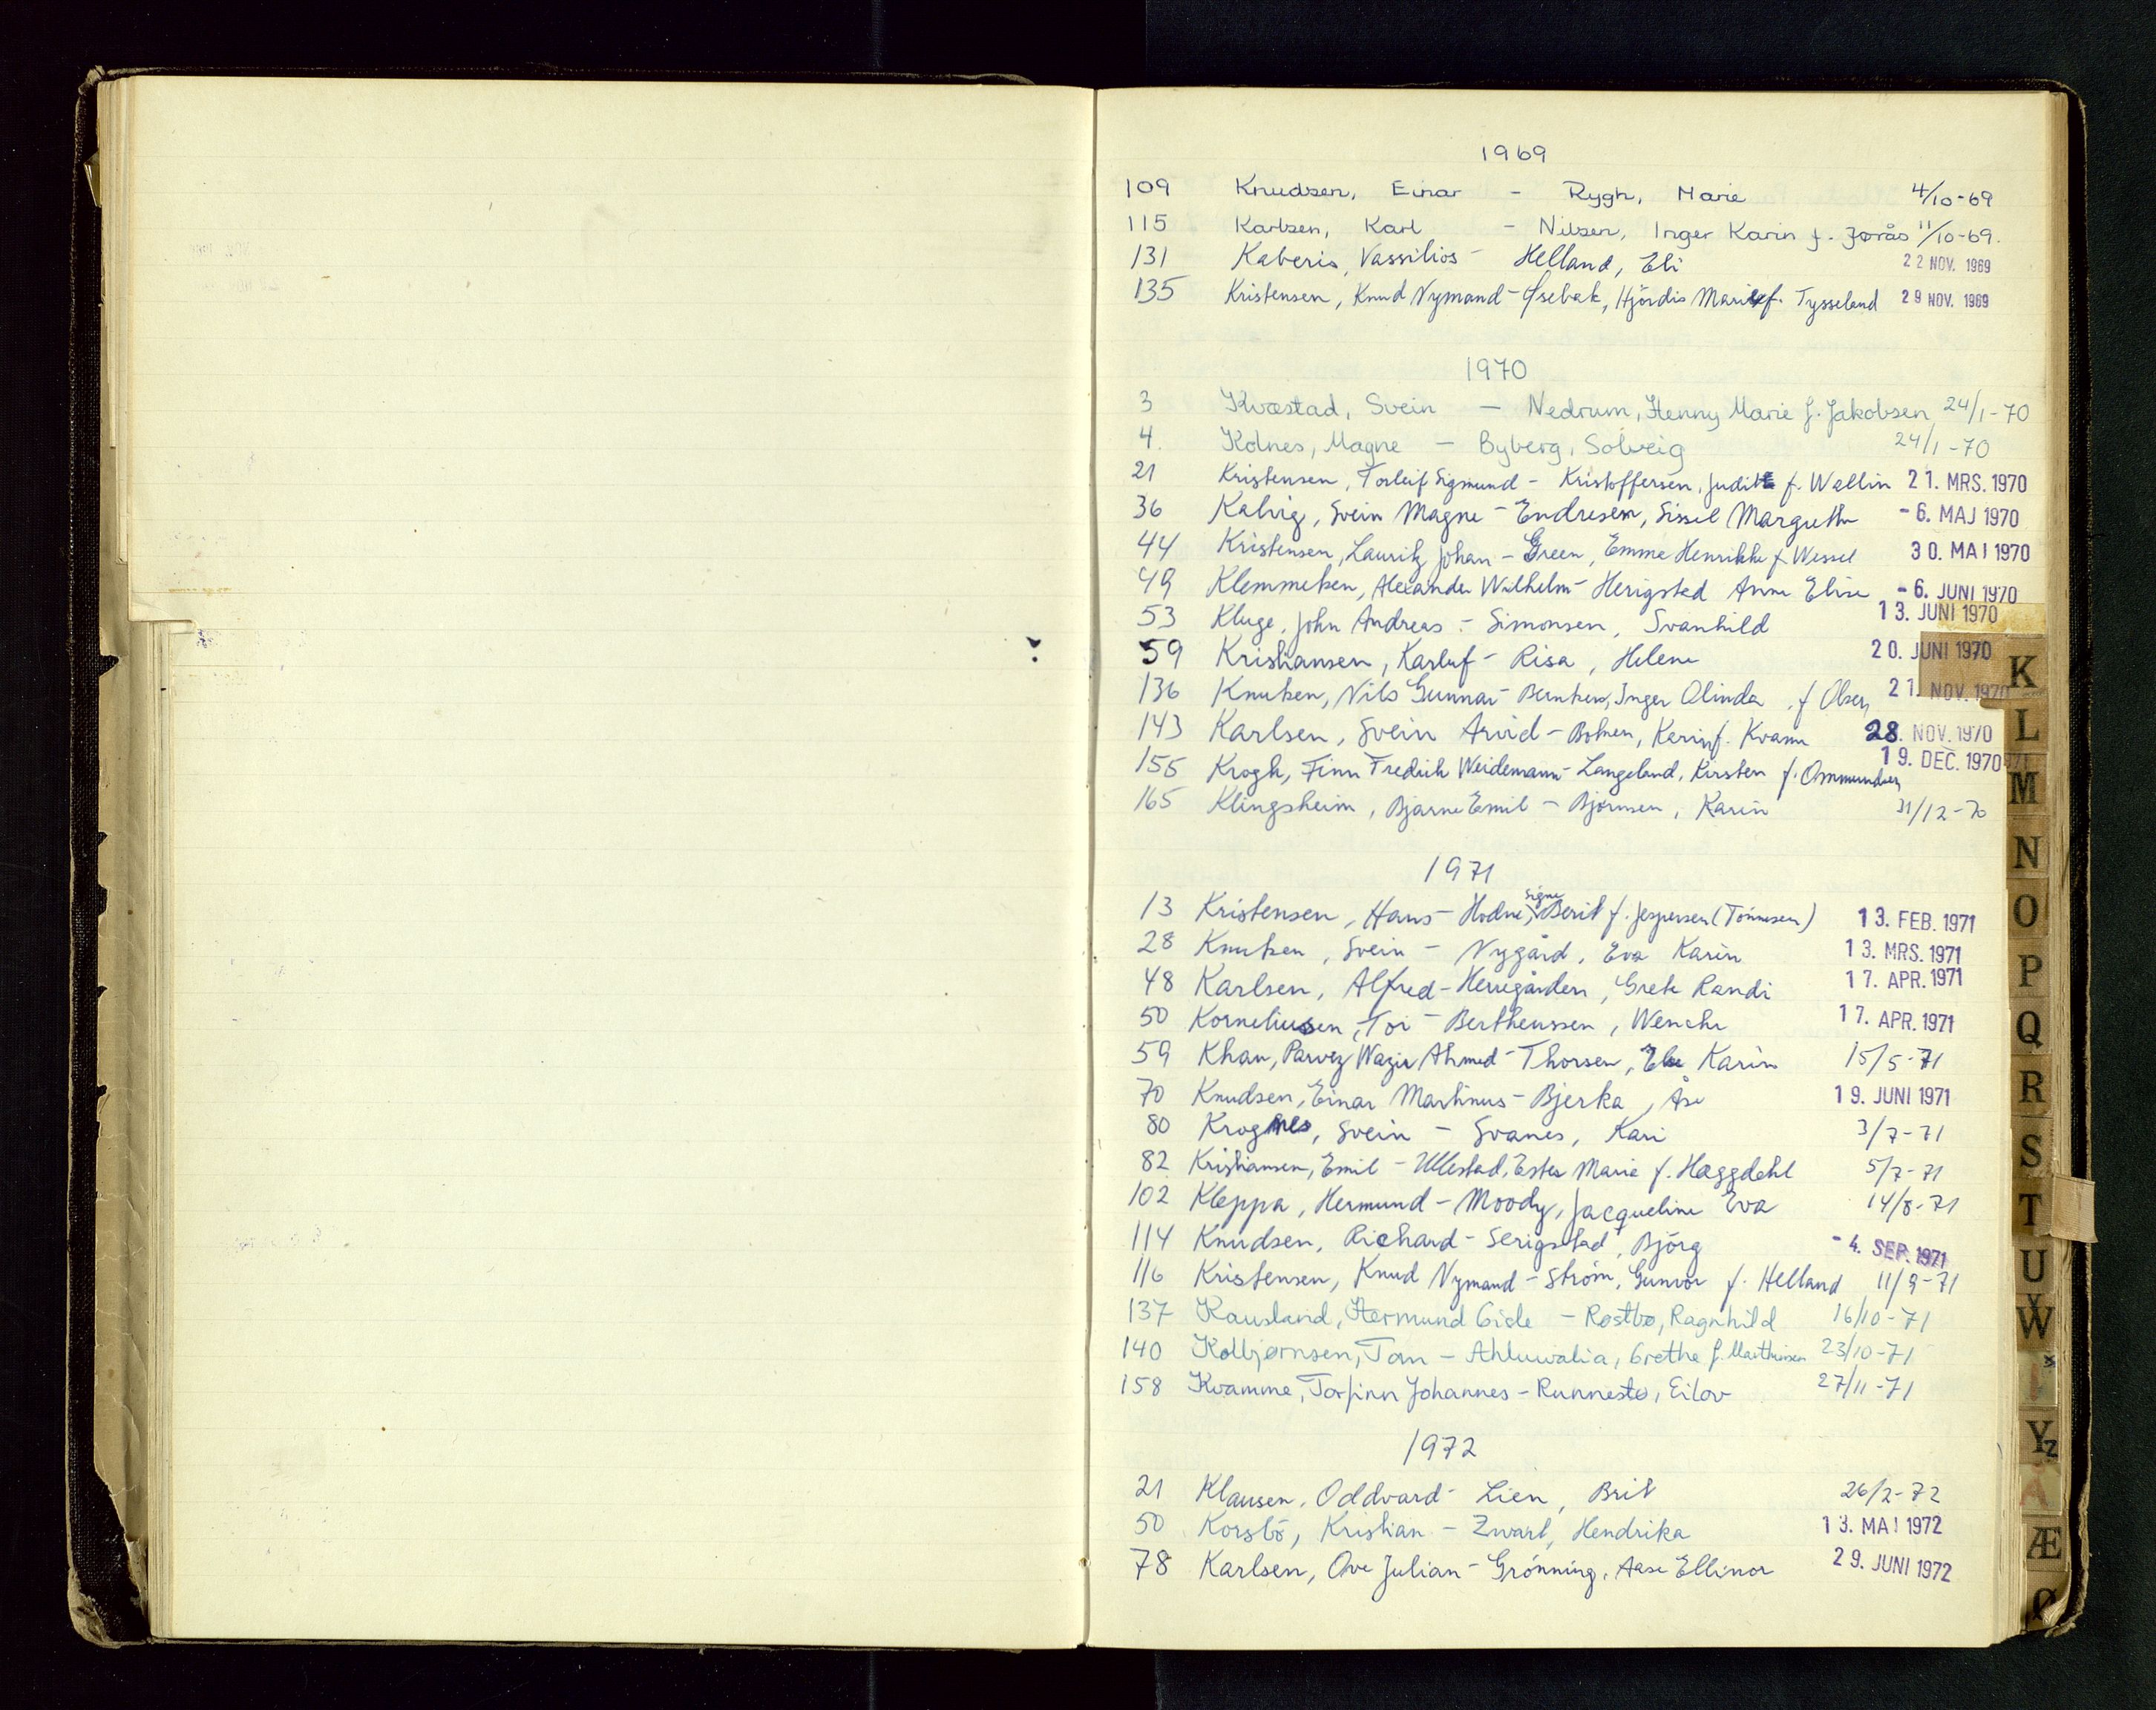 1969
109 Knudsen, Einar - Rygh, Marie 4/10-69
115 Karlsen, Karl - Nilsen, Inger Karin f. Jørås 11/10-69.
131 Kaberis, Vassilios - Helland, Eli 22 NOV. 1969
135 Kristensen, Knud Nymand - Øsebak, Hjördis Marie f. Tysseland 29 NOV. 1969
1970
3 Kvæstad, Svein - Nedrum, Henny Marie f. Jakobsen 24/1-70
4. Kolnes, Magne - Byberg, Solveig 24/1-70
21 Kristensen, Torleif Sigmund - Kristoffersen, Judith f. Wallin 21. MRS. 1970
36 Kalvig, Svein Magne - Endresen, Sissel Margrethe -6. MAJ 1970
44 Kristensen, Lauritz Johan - Green, Emma Henrikke f. Wessel 30. MAI 1970
49 Klemmetsen, Alexander Wilhelm - Herigstad Anne Elise -6. JUNI 1970
53 Kluge, John Andreas - Simonsen, Svanhild 13. JUNI 1970
59 Kristiansen, Karluf - Risa, Helene 20. JUNI 1970
136 Knutsen, Nils Gunnar - Berntsen, Inger Olinda, f Olsen 21. NOV. 1970
143 Karlsen, Svein Arvid - Bohren, Karin f. Kvame 28. NOV. 1970
155 Krogh, Finn Fredrik Weidemann - Langeland, Kirsten f. Ommundsen 19. DEC. 1970
165 Klingsheim, Bjarne Emil - Bjørnsen, Karin 31/12-70
1971
13 Kristensen, Hans - Hodne, Signe Berit f. Jespersen (Tönnesen) 13. FEB. 1971
28 Knutsen, Svein - Nygård, Eva Karin 13. MRS. 1971
48 Karlsen, Alfred - Herregården, Grete Randi 17. APR. 1971
50 Korneliussen, Tor - Bertheussen, Wenche 17. APR. 1971
59 Khan, Parvez Wazir Ahmed - Thorsen, Else Karin 15/5-71
70 Knudsen, Einar Martinus - Bjerka, Åse 19. JUNI 1971
80 Krognes, Svein - Svanes, Kari 3/7-71
82 Kristiansen, Emil - Ullestad, Ester Marie f. Haggdehl 5/7-71
102 Kleppa, Hermund - Moody, Jacqueline Eva 14/8-71
114 Knudsen, Richard - Serigstad, Björg -4. SEP. 1971
116 Kristensen, Knud Nymand - Ström, Gunvor f. Helland 11/9-71
137 Kausland, Hermund Gisle - Røstbø, Ragnhild 16/10-71
140 Kolbjørnsen, Tom - Ahluwalia, Grethe f. Marthinsen 23/10-71
158 Kvamme, Torfinn Johannes - Runnestø, Eilov 27/11-71
1972
21 Klausen, Oddvard - Lien, Brit 26/2-72
50 Korsbö, Kristian - Zwart, Hendrika 13. MAI 1972
78 Karlsen, Ove Julian - Grönning, Aase Ellinor 29. JUNI 1972
K
L
M
N
O
P
Q
R
S
T
U
V
W
X
YZ
Å
Æ
Ø